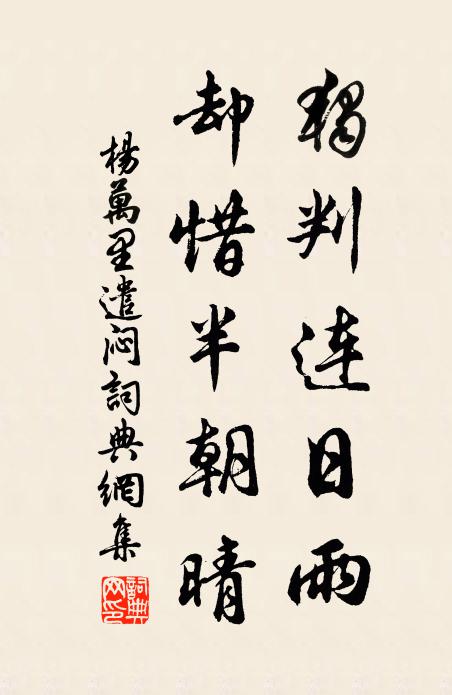 獨判連日雨
却惜半朝晴
楊萬里遣悶詞典網集
詞典網印